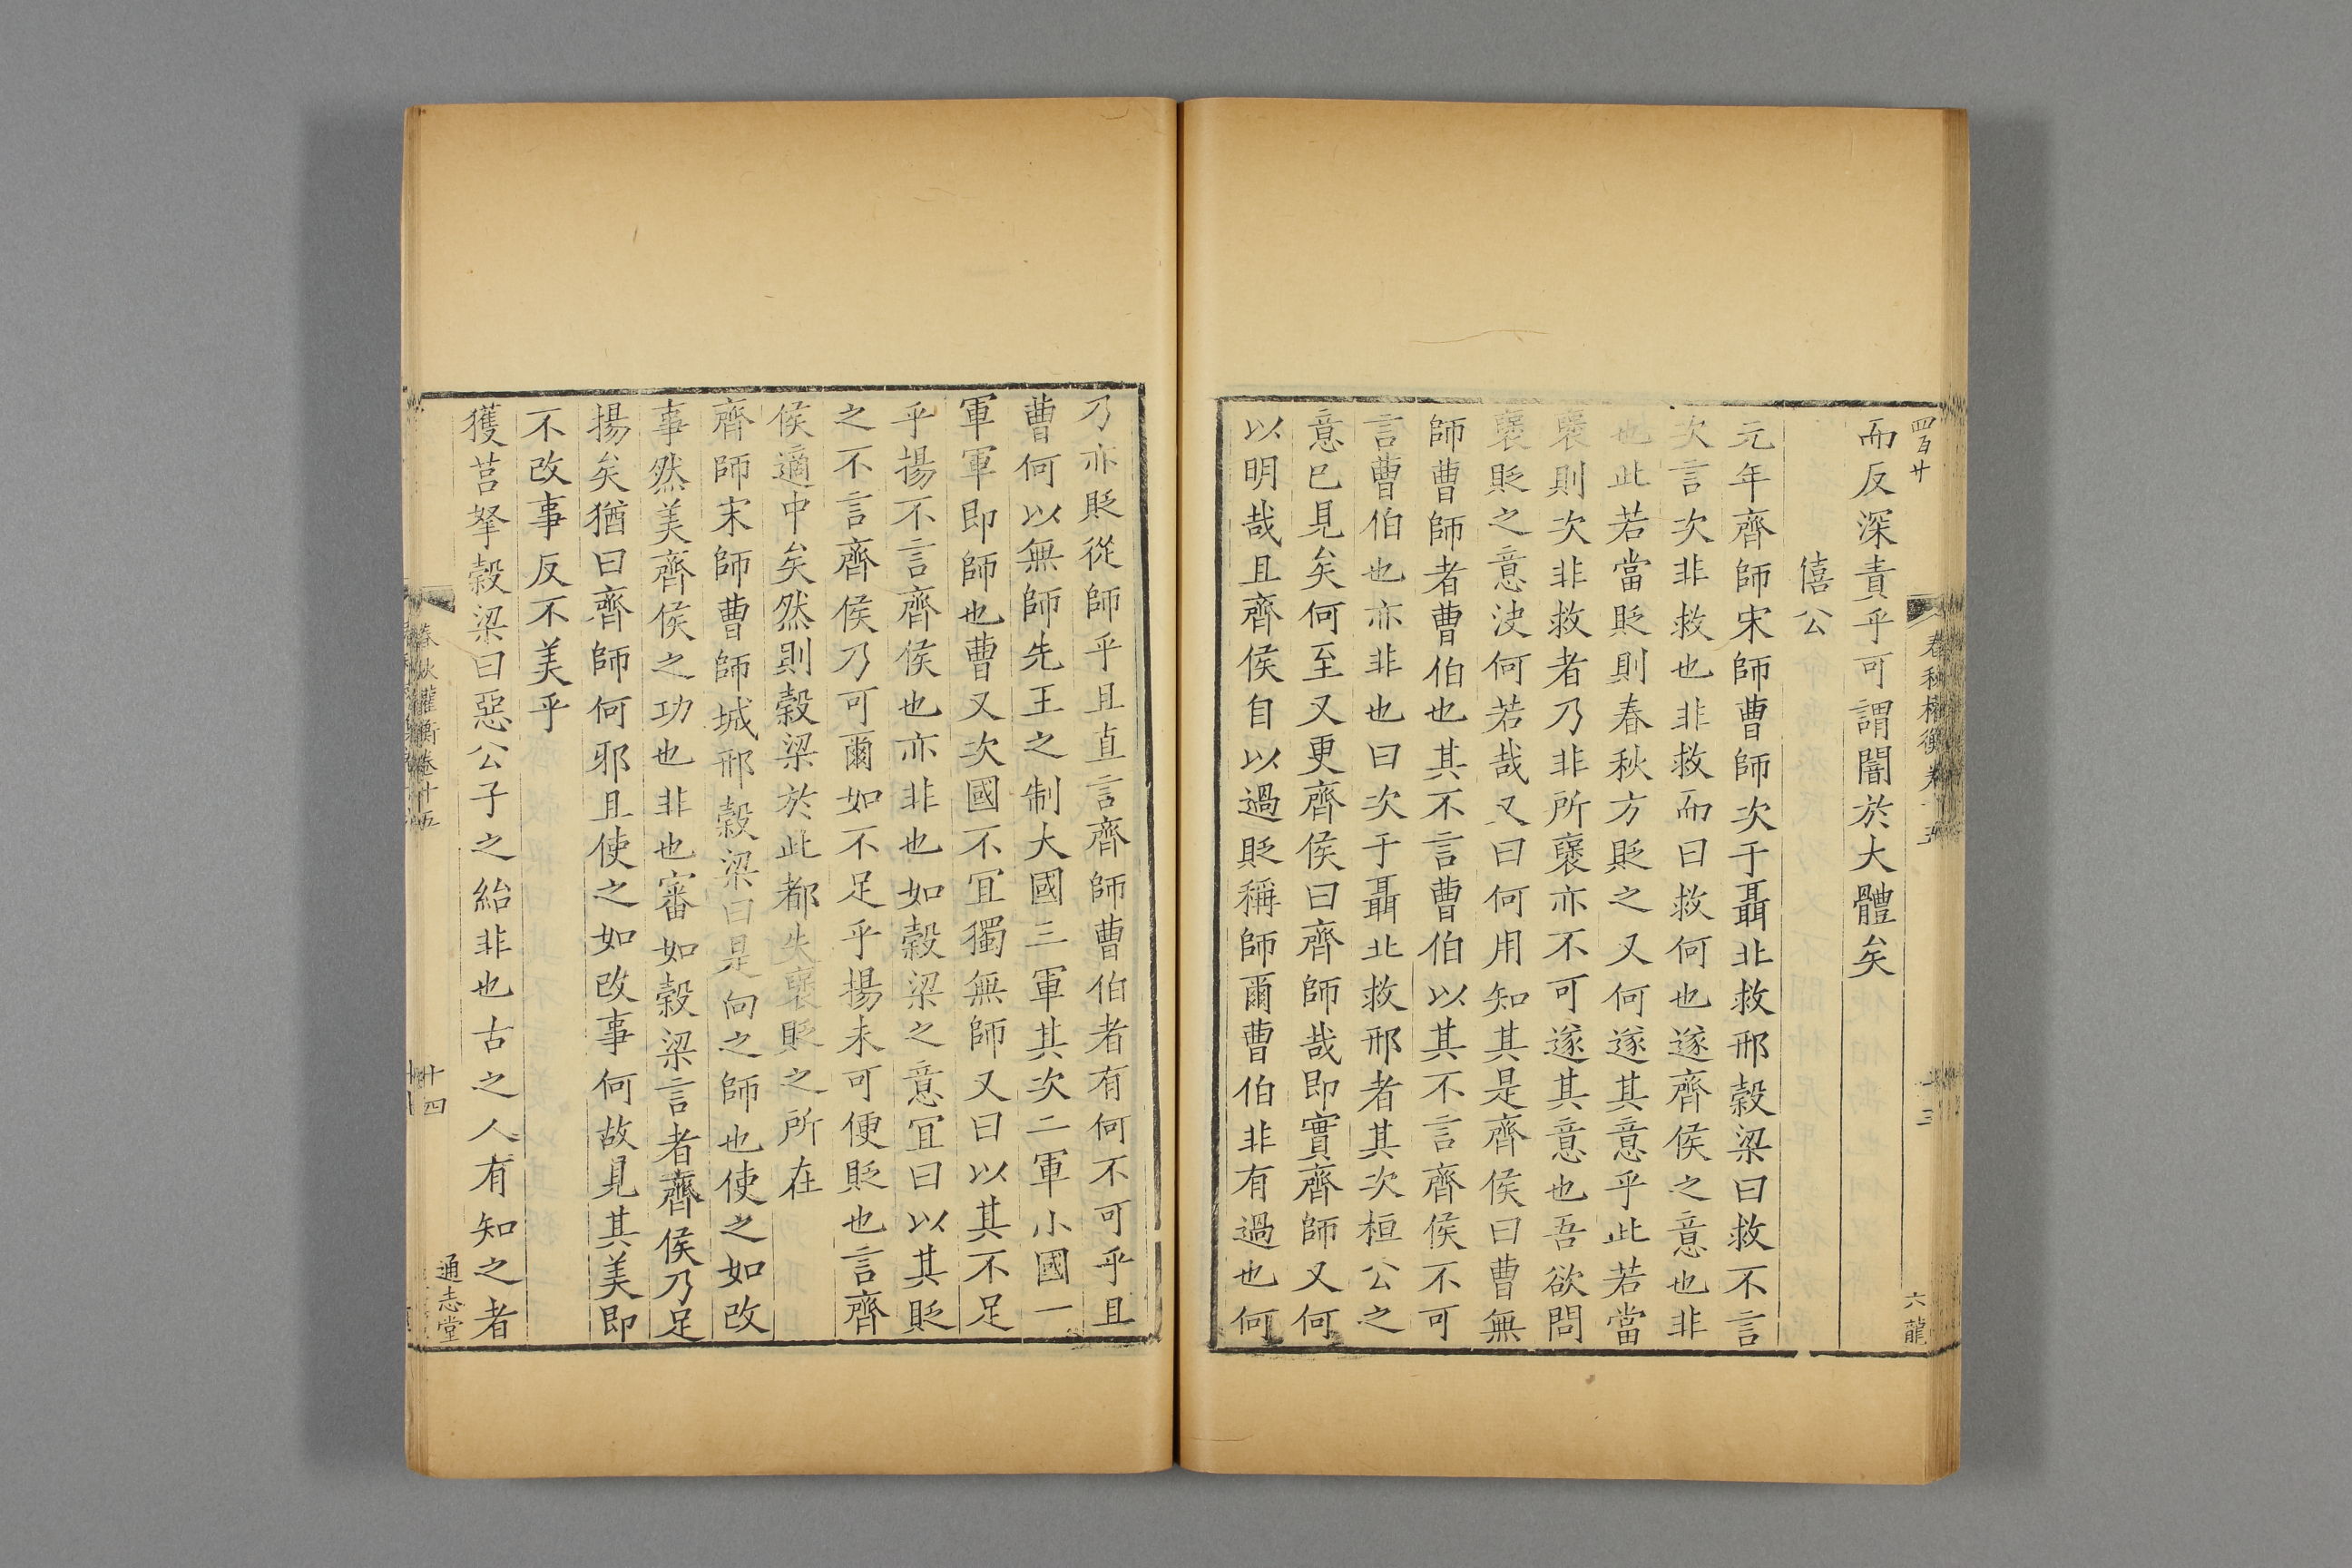 四百廿
春秋權衡卷十五
十三
六龍
而反深責乎可謂闇於大體矣
僖公
元年齊師宋師曹師次于聶北救邢穀梁曰救不言
次言次非救也非救而曰救何也遂齊侯之意也非
也此若當貶則春秋方貶之又何遂其意乎此若當
襃則次非救者乃非所襃亦不可遂其意也吾欲問
襃貶之意決何若哉又曰何用知其是齊侯曰曹無
師曹師者曹伯也其不言曹伯以其不言齊侯不可
言曹伯也亦非也曰次于聶北救邢者其次桓公之
意已見矣何至又更齊侯曰齊師哉即實齊師又何
以明哉且齊侯自以過貶稱師爾曹伯非有過也何
乃亦貶從師乎且直言齊師曹伯者有何不可乎且
曹何以無師先王之制大國三軍其次二軍小國一
軍軍即師也曹又次國不冝獨無師又曰以其不足
乎揚不言齊侯也亦非也如穀梁之意冝曰以其貶
之不言齊侯乃可爾如不足乎揚未可便貶也言齊
侯適中矣然則穀梁於此都失襃貶之所在
齊師宋師曹師城邢穀梁曰是向之師也使之如改
事然美齊侯之功也非也審如穀梁言者齊侯乃足
揚矣猶曰齊師何邪且使之如改事何故見其美即
不改事反不美乎
獲莒挐穀梁曰惡公子之紿非也古之人有知之者
春秋權衡卷十五
十四
通志堂